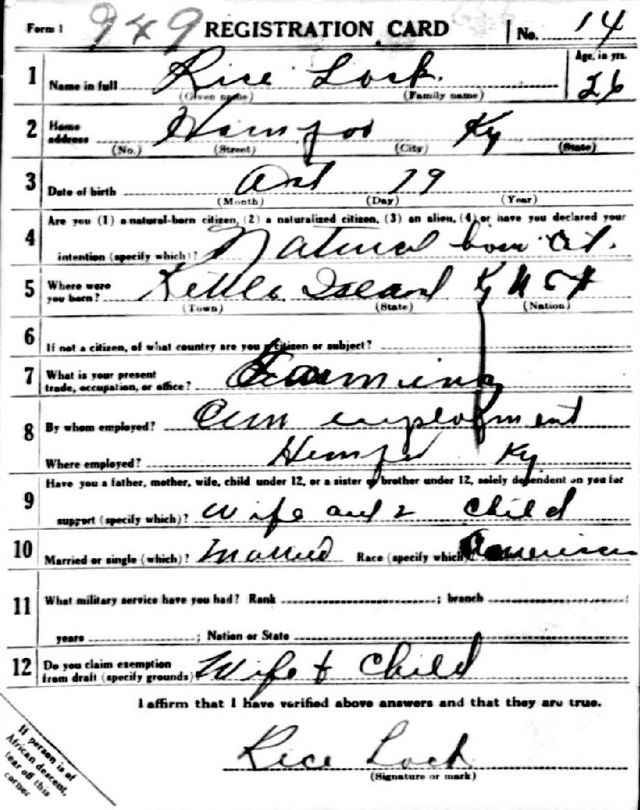 Form 1 949 REGISTRATION CARD No. 14
1 Name in full Rice Lock Age, in yrs. 26
(Given name) (Family name)
2 Home address Ky
(No.) (Street) (City) (State)
3 Date of birth 19
(Month) (Day) (Year)
4 Are you (1) a natural-born citizen, (2) a naturalized citizen, (3) an alien, (4) or have you declared your
intention (specify which)? Natural born Cit.
5 Where were you born? Kettle Island Ky U S A
(Town) (State) (Nation)
6 If not a citizen, of what country are you a citizen or subject?
7 What is your present trade, occupation, or office? Farming
8 By whom employed? employment
Where employed? Ky
9 Have you a father, mother, wife, child under 12, or a sister or brother under 12, solely dependent on you for
support (specify which)? Wife and 2 child
10 Married or single (which)? Married Race (specify which)? American
11 What military service have you had? Rank ; branch
years ; Nation or State
12 Do you claim exemption from draft (specify grounds)? Wife & Child
I affirm that I have verified above answers and that they are true.
Rice Lock
(Signature or mark)
If person is of
African descent,
tear off this
corner